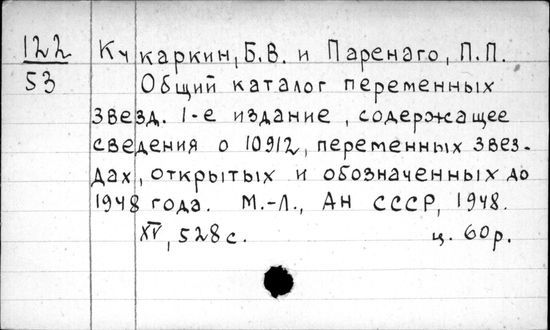 122
53
Кукаркин, Б.В. и Паренаго, П.П.
Общий каталог переменных
звезд. 1-е издание, содержащее
сведения о 10912, переменных звез-
дах, открытых и обозначенных до
1948 года. М.-Л., АН СССР, 1948.
XV, 528с. ц. 60р.